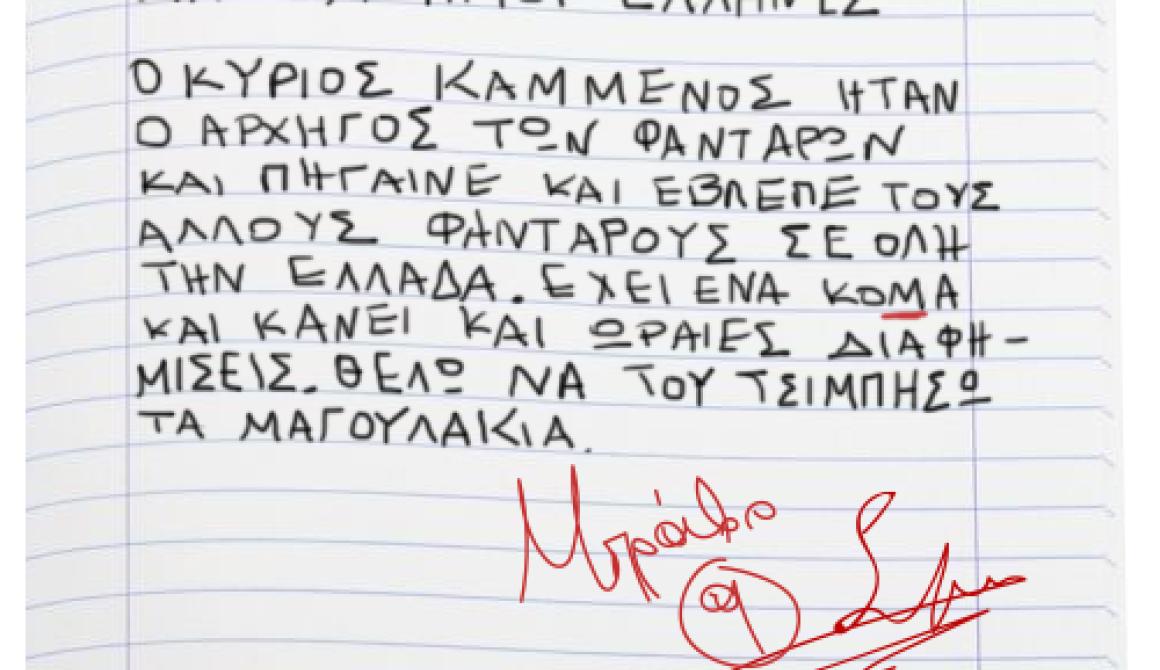 ΕΛΛΗΝΕΣ
Ο ΚΥΡΙΟΣ ΚΑΜΜΕΝΟΣ ΗΤΑΝ
Ο ΑΡΧΗΓΟΣ ΤΩΝ ΦΑΝΤΑΡΩΝ
ΚΑΙ ΠΗΓΑΙΝΕ ΚΑΙ ΕΒΛΕΠΕ ΤΟΥΣ
ΑΛΛΟΥΣ ΦΑΝΤΑΡΟΥΣ ΣΕ ΟΛΗ
ΤΗΝ ΕΛΛΑΔΑ. ΕΧΕΙ ΕΝΑ ΚΟΜΑ
ΚΑΙ ΚΑΝΕΙ ΚΑΙ ΩΡΑΙΕΣ ΔΙΑΦΗ-
ΜΙΣΕΙΣ. ΘΕΛΩ ΝΑ ΤΟΥ ΤΣΙΜΠΗΣΩ
ΤΑ ΜΑΓΟΥΛΑΚΙΑ.
Μπράβο